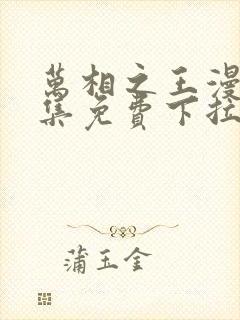 萬相之王漫
集免費下拉
蒲玉金